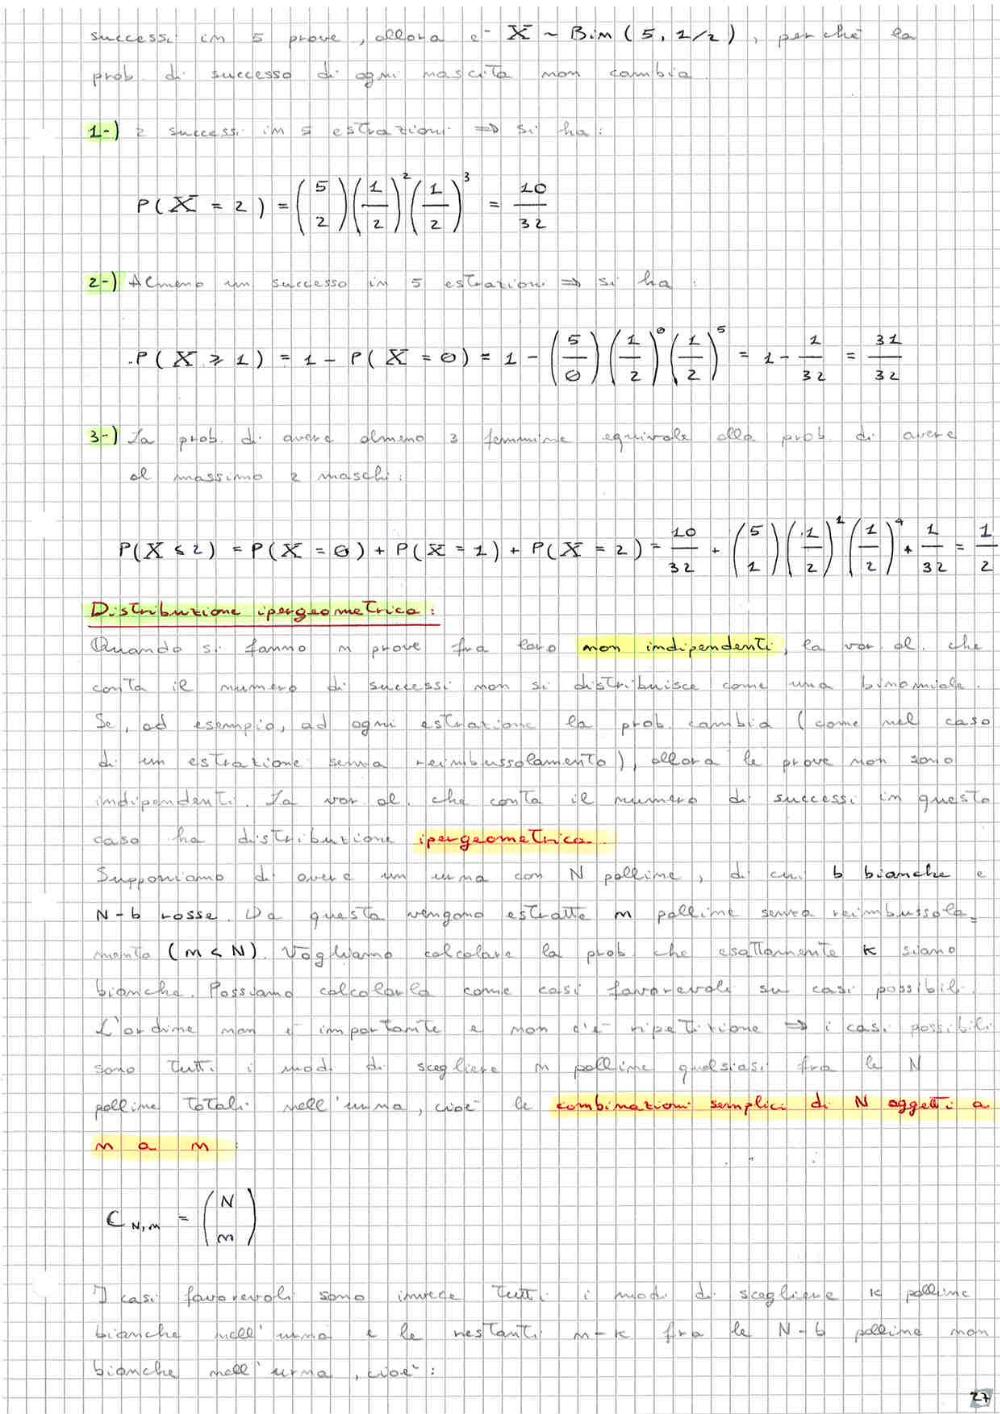 successi in 5 prove, allora è X ~ Bin(5, 1/2), perché la
prob. di successo di ogni nascita non cambia
1-) 2 successi in 5 estrazioni ⇒ si ha:
P(X = 2) = (5 2) (1/2)^2 (1/2)^3 = 10/32
2-) Almeno un successo in 5 estrazioni ⇒ si ha:
P(X ⩾ 1) = 1 - P(X = 0) = 1 - (5/0) (1/2)^0 (1/2)^5 = 1 - 1/32 = 31/32
3-) La prob. di avere almeno 3 femmine equivale alla prob. di avere
al massimo 2 maschi:
P(X ⩽ 2) = P(X = 0) + P(X = 1) + P(X = 2) = 10/32 + (5 1) (1/2)^1 (1/2)^4 + 1/32 = 1/2
Distribuzione ipergeometrica:
Quando si fanno n prove fra loro non indipendenti, la var. al. che
conta il numero di successi non si distribuisce come una binomiale.
Se, ad esempio, ad ogni estrazione la prob. cambia (come nel caso
di un estrazione senza reimbussolamento), allora le prove non sono
indipendenti. La var. al. che conta il numero di successi in questo
caso ha distribuzione ipergeometrica.
Supponiamo di avere un urna con N palline, di cui b bianche e
N-b rosse. Da questa vengono estratte n palline senza reimbussola=
mento (n < N). Vogliamo calcolare la prob. che esattamente k siano
bianche. Possiamo calcolarla come casi favorevoli su casi possibili.
L'ordine non è importante e non c'è ripetizione ⇒ i casi possibili
sono tutti i modi di scegliere n palline qualsiasi fra le N
palline totali nell'urna, cioè le combinazioni semplici di N oggetti a
n a n:
C N,n = (N n)
I casi favorevoli sono invece tutti i modi di scegliere k palline
bianche nell'urna e le restanti n-k fra le N-b palline non
bianche nell'urna, cioè:
27